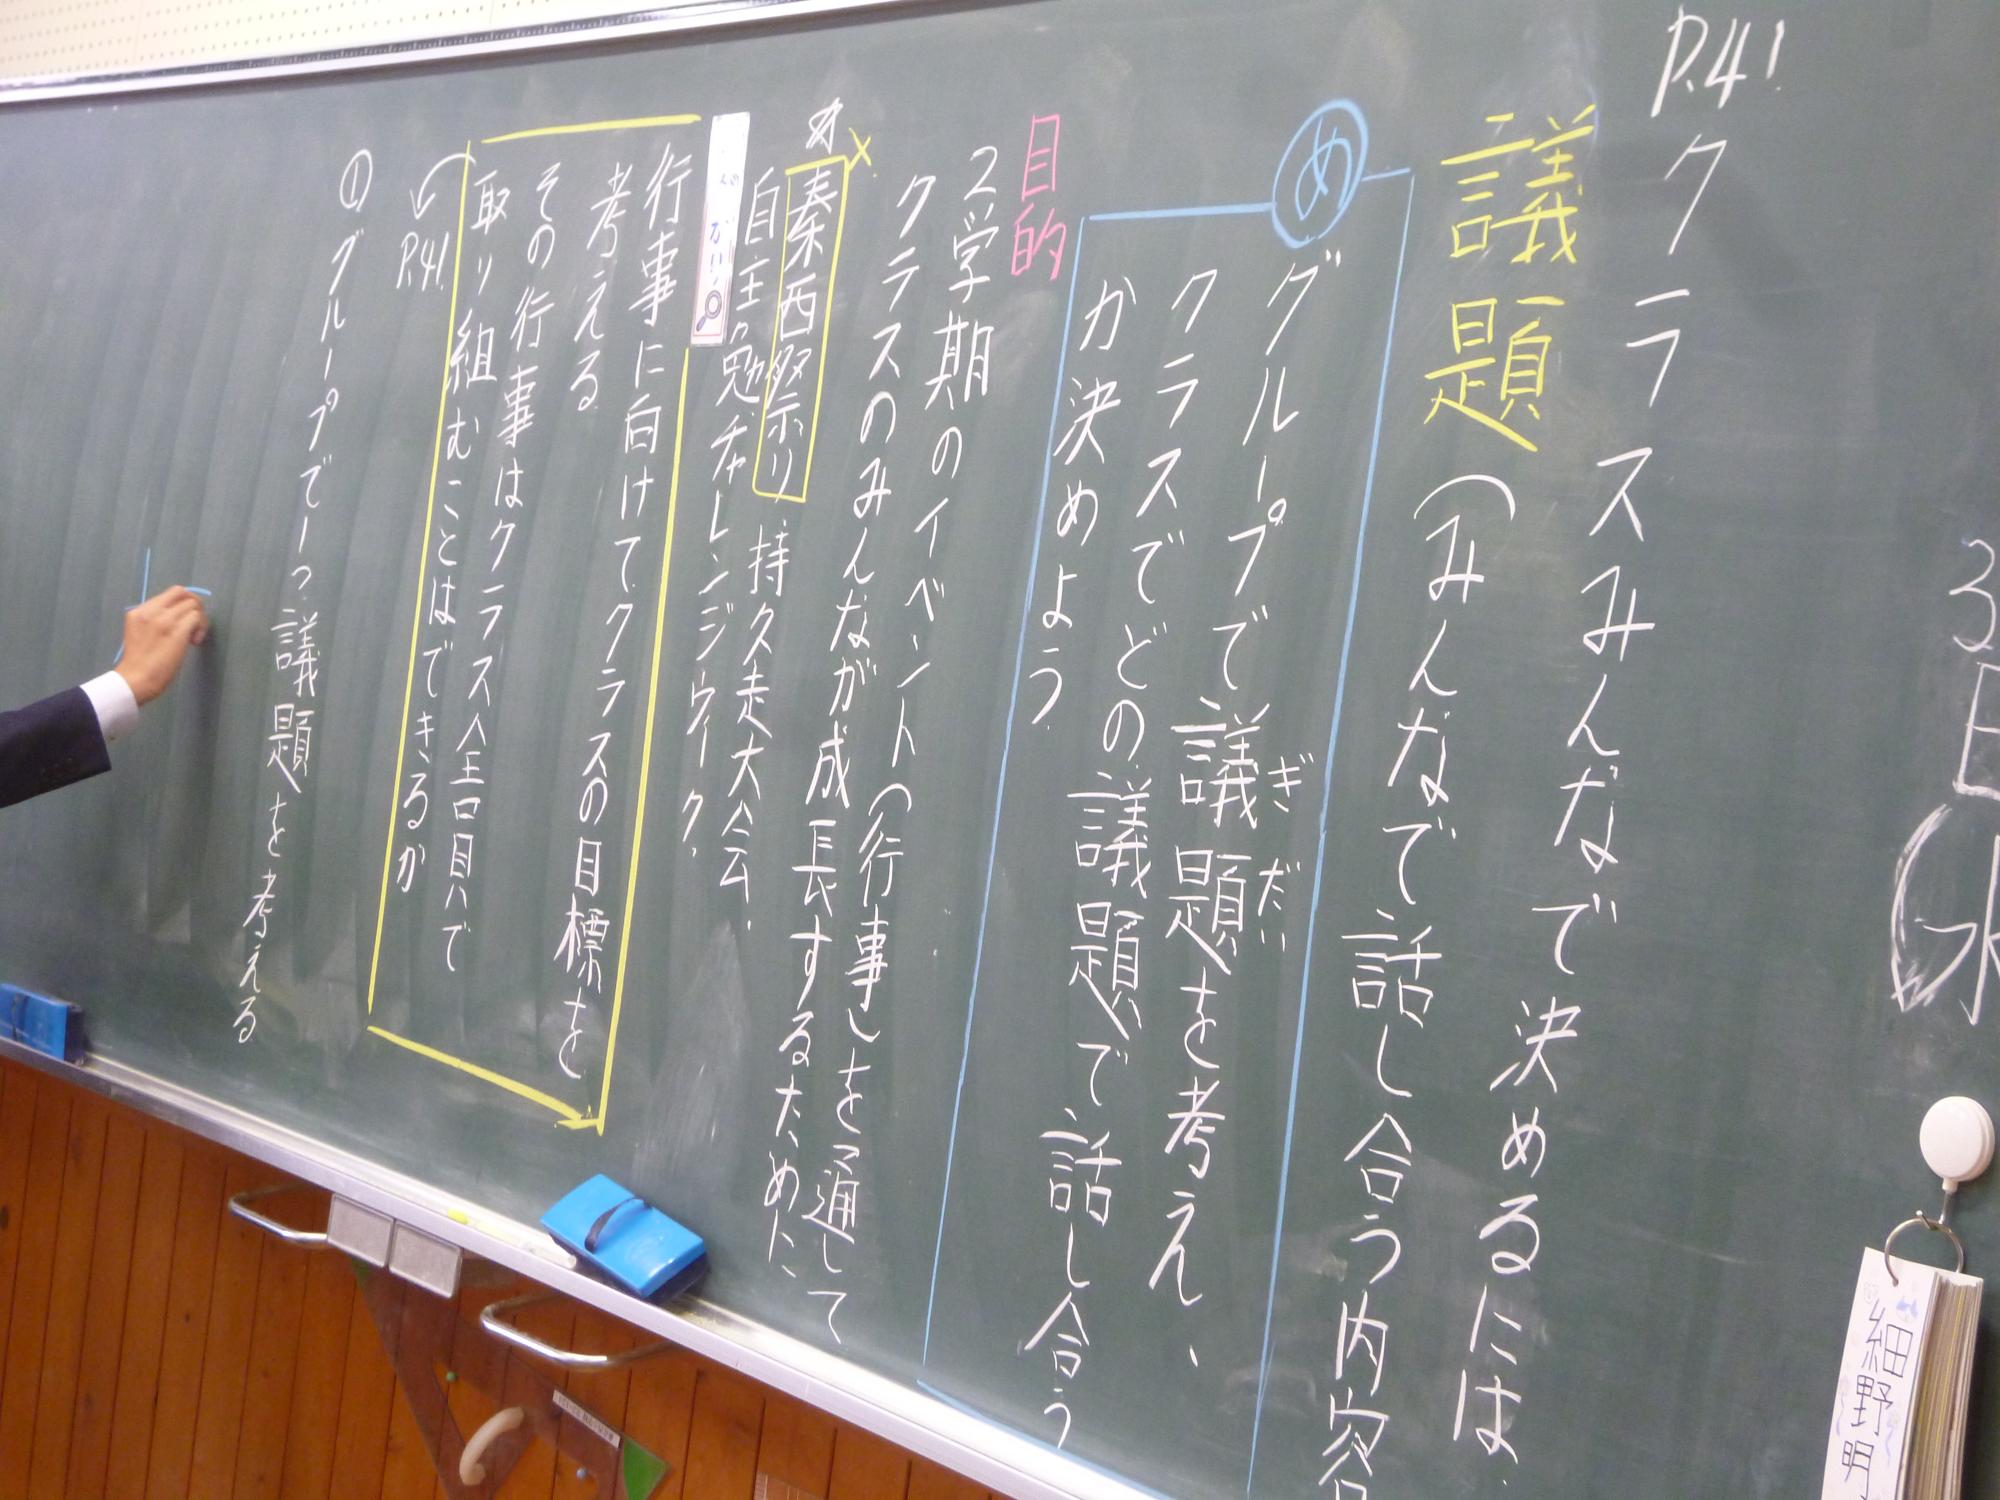 3日(水
P.41 クラスみんなで決めるには
議題(みんなで話し合う内容
め
グループで議題を考え、
ぎだい
クラスでどの議題で話し合う
か決めよう
目的
2学期のイベント(行事)を通して
クラスのみんなが成長するために
秦西祭り 持久走大会
自主勉チャレンジウィーク
行事に向けてクラスの目標を
考える
その行事はクラス全員で
取り組むことはできるか
P.41
①グループで一つ議題を考える
細野明